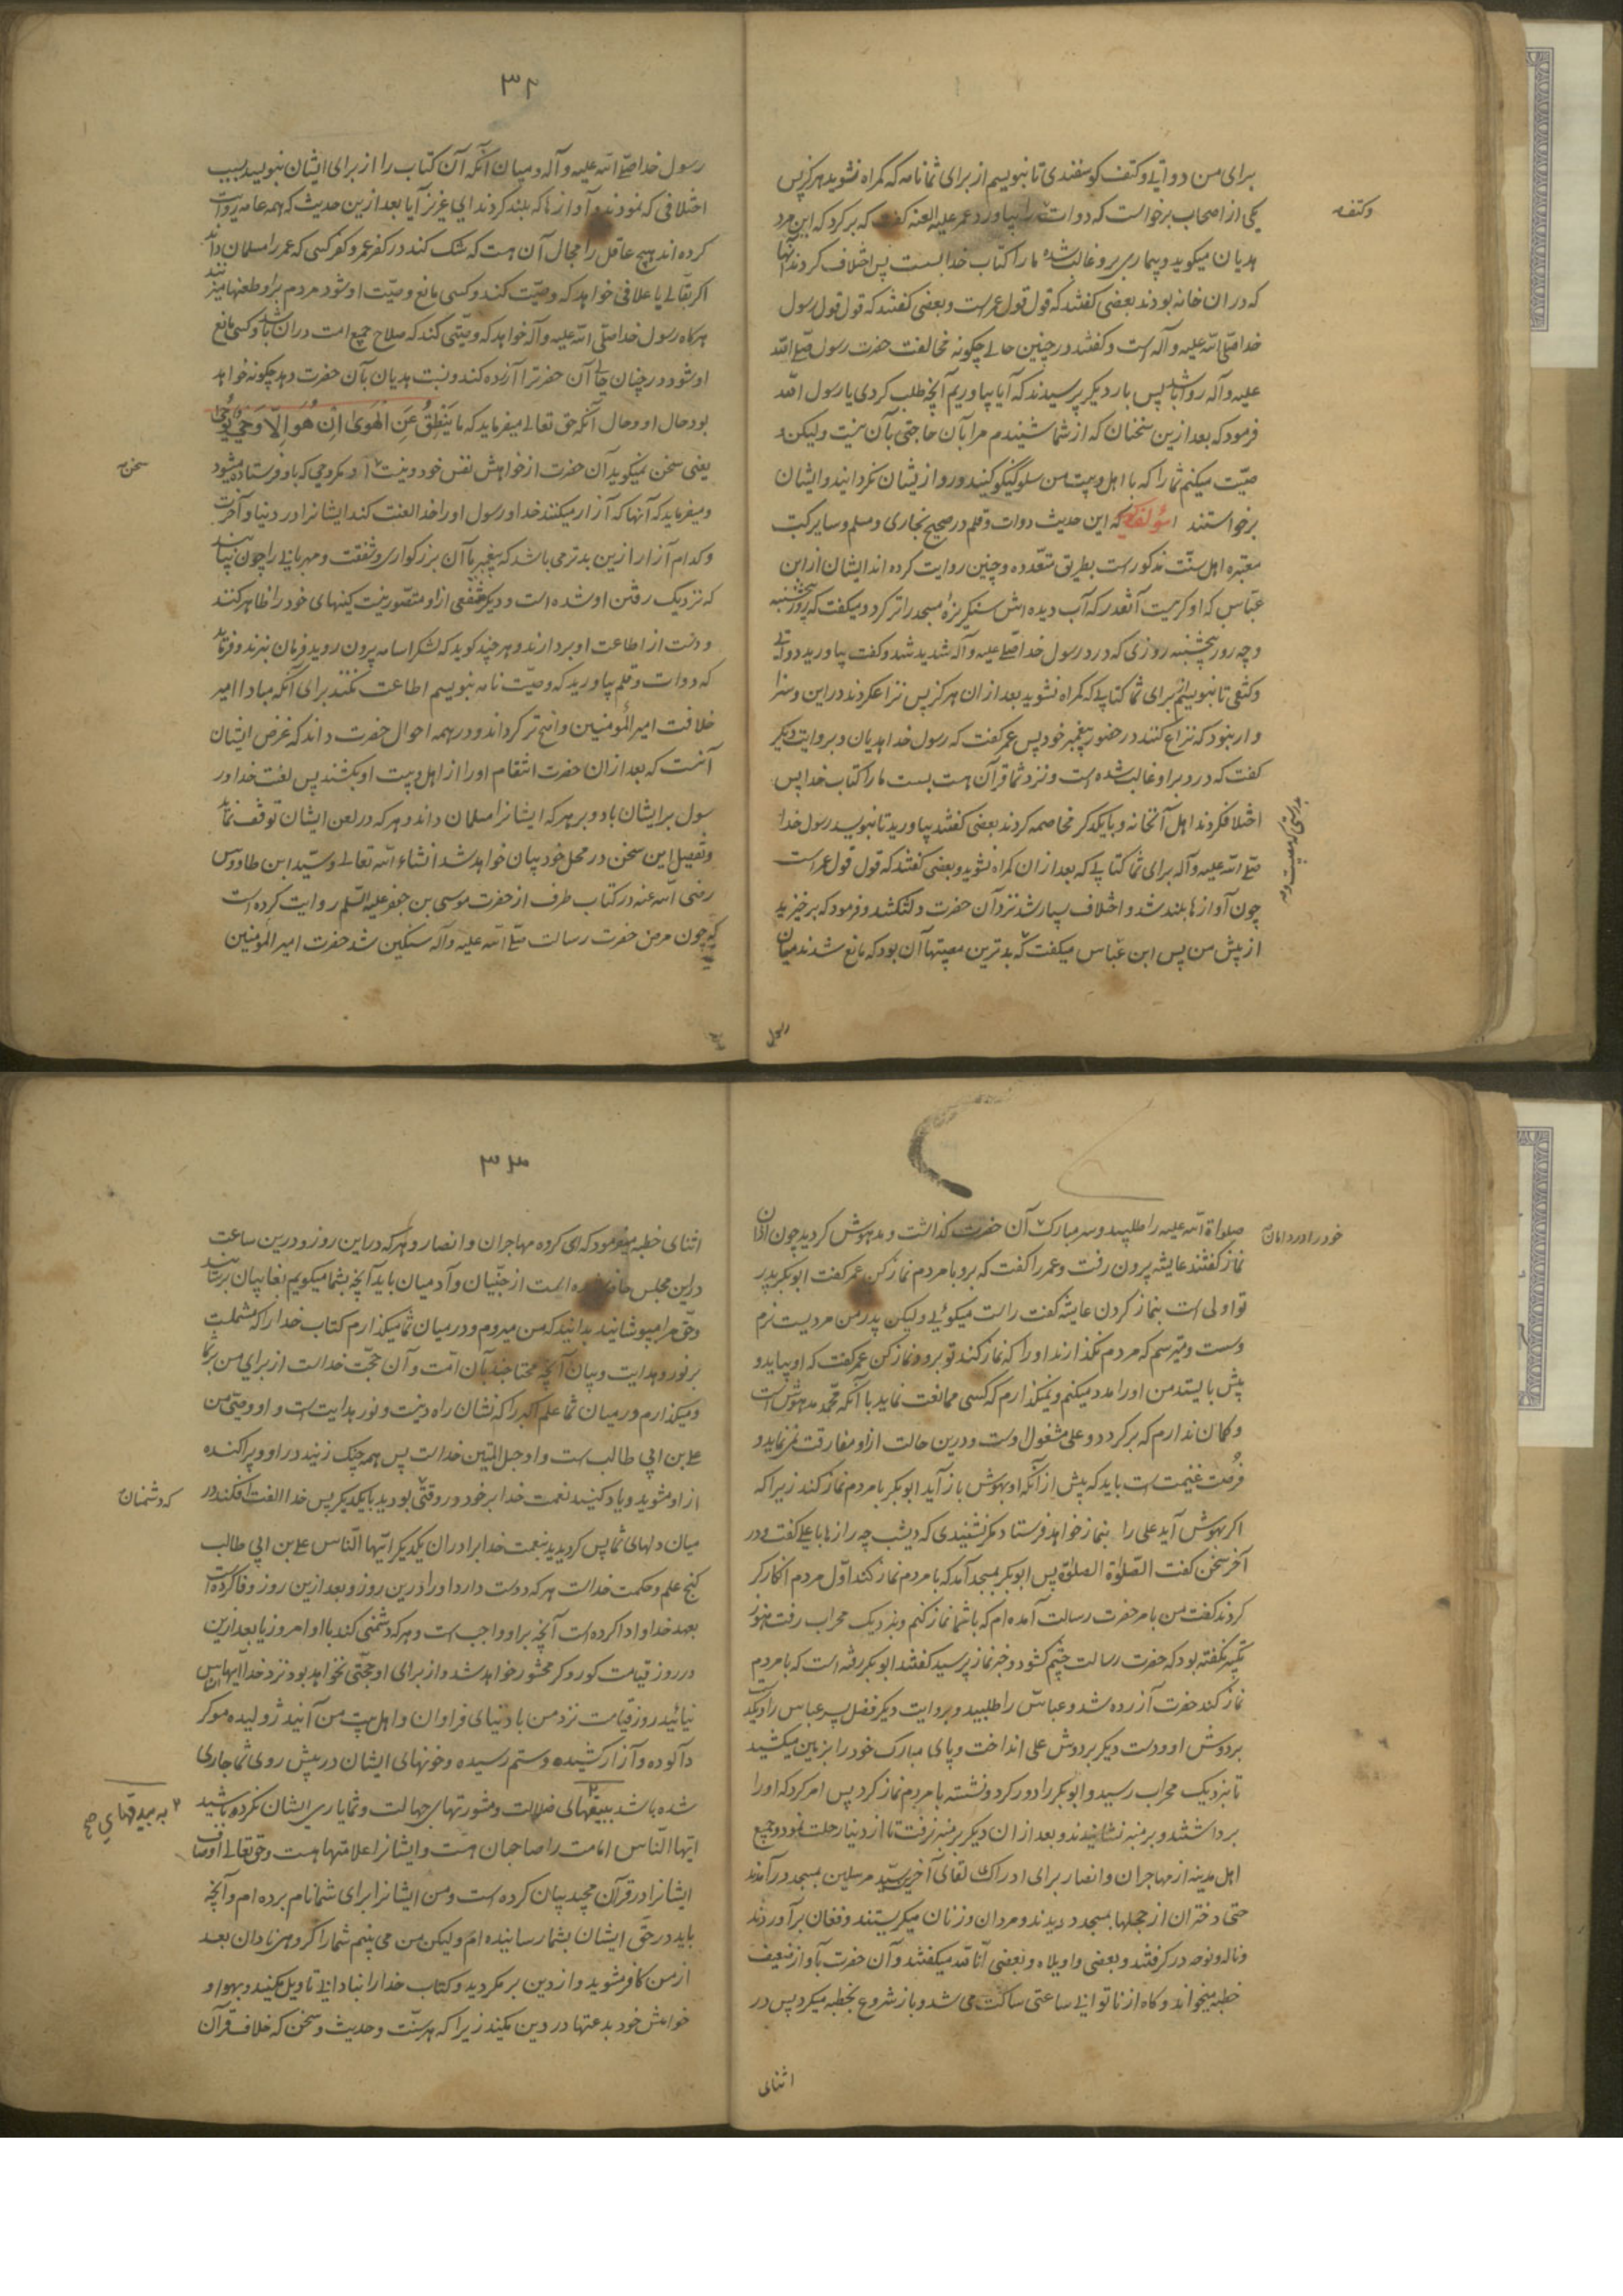 برای من دواتی و کتف کوسفندی تا بنویسم از برای شما نامه که کمراه نشوید هرکز پس
وکتفه
یکی از اصحاب برخواست که دوات را بیاورد عمر علیه العنه کفت که برکرد که این مرد
هدیان میکوید و بیماری بر و غالب شده ما را کتاب خدا بست پس اختلاف کردند آنها
که در ان خانه بودند بعضی کفتند که قول قول عمر است و بعضی کفتند که قول قول رسول
خدا صلی الله علیه و آله است و کفتند در چنین حالی چکونه مخالفت حضرت رسول صلی الله
علیه و آله روا باشد پس بار دیکر پرسیدند که آیا بیاوریم آنچه طلب کردی یا رسول الله
فرمود که بعد از ین سخنان که از شما شنیدم مرا بآن حاجتی بآن نیست و لیکن و
صیّت میکنم شما را که با اهل بیت من سلوک نیکو کنید و رو از یشان نکردانید و ایشان
برخواستند مؤلف کوید که این حدیث دوات و قلم در صحیح بخاری و مسلم و سایر کتب
معتبره اهل سنّت مذکور است بطریق متعدّده و چنین روایت کرده اند ایشان از ابن
عبّاس که او کریست آنقدر که آب دیده اش سنکریزهٔ مسجد را تر کرد و میکفت که روز پنجشنبه
و چه روز پنجشنبه روزی که درد رسول خدا صلی علیه و آله شدید شد و کفت بیاورید دواتی
و کتفی تا بنویسم برای شما کتابی که کمراه نشوید بعد از ان هرکز پس نزاع کردند در این و سزا
وار نبود که نزاع کنند در حضور پیغمبر خود پس عمر کفت که رسول خدا هدیان و بروایت دیکر
کفت که درد بر او غالب شده است و نزد شما قرآن هست بست ما را کتاب خدا پس
اختلاف کردند اهل آنخانه و با یکدکر مخاصمه کردند بعضی کفتند بیاورید تا بنویسد رسول خدا
صلی الله علیه و آله برای شما کتابی که بعد از ان کمراه نشوید و بعضی کفتند که قول قول عمر است
چون آوازها بلند شد و اختلاف بسیار شد نزد آن حضرت دلتنکشد و فرمود که برخیزید
از پیش من پس ابن عبّاس میکفت که بدترین مصیبتها آن بود که مانع شدند میان
رسول
۳۲
رسول خدا صلی الله علیه و آله و میان آنکه آن کتاب را از برای ایشان بنویسد بسبب
اختلافی که نمودند و آوازها که بلند کردند ای عزیز آیا بعد از ین حدیث که همه عامه روایت
کرده اند هیچ عاقل را مجال آن هست که شک کند در کفر عمر و کفر کسی که عمر را مسلمان داند
اکر بقالی یا علافی خواهد که وصیّت کند و کسی مانع وصیّت او شود مردم بر او طعنها میزنند
هرکاه رسول خدا صلی الله علیه و آله خواهد که وصیّتی کند که صلاح جمیع امت در ان باشد و کسی مانع
او شود و در چنان حالی آن حضرترا آزرده کند و نسبت هدیان بآن حضرت دهد چکونه خواهد
بود حال او و حال آنکه حق تعالی میفرماید که مَا یَنْطِقُ عَنِ الْهَوٰی اِنْ هُوَ اِلّا وَحْیٌ یُوحٰی
یعنی سخن نمیکوید آن حضرت از خواهش نفس خود و نیست آن مکر وحی که باو فرستاده میشود
سخن
و میفرماید که آنها که آزار میکنند خدا و رسول او را خدا لعنت کند ایشانرا در دنیا و آخرت
و کدام آزار از ین بدتر می باشد که پیغمبر بآن بزرکواری و شفقت و مهربانی را چون بیابند
که نزدیک رفتن او شده است و دیکر نفعی از او متصوّر نیست کینهای خود را ظاهر کنند
و دست از اطاعت او بردارند و هرچند کوید که لشکر اسامه بیرون روید فرمان نبرند و فرماید
که دوات و قلم بیاورید که وصیّت نامه بنویسم اطاعت نکنند برای آنکه مبادا امر
خلافت امیر المؤمنین واضح تر کرداند و در همه احوال حضرت داند که غرض ایشان
آنست که بعد از ان حضرت انتقام او را از اهل بیت او بکشند پس لعنت خدا و ر
سول بر ایشان باد و بر هر که ایشانرا مسلمان داند و هر که در لعن ایشان توقف نماید
و تفصیل این سخن در محل خود بیان خواهد شد انشاء الله تعالی و سیّد ابن طاووس
رضی الله عنه در کتاب طرف از حضرت موسی بن جعفر علیه السّلم روایت کرده است
که چون مرض حضرت رسالت صلی الله علیه و آله سنکین شد حضرت امیر المؤمنین
صلواة الله علیه را طلبید و سر مبارک آن حضرت کذاشت و بدهوش کردید چون اذان
خود را در دامان
نماز کفتند عایشه بیرون رفت و عمر را کفت که برو با مردم نماز کن عمر کفت ابوبکر پدر
تو اولی است بنماز کردن عایشه کفت راست میکوئی ولیکن پدر من مردیست نرم
و سست و میترسم که مردم نکذارند او را که نماز کند تو برو و نماز کن عمر کفت که او بیاید و
پیش بایستد من او را مدد میکنم و نمیکذارم که کسی ممانعت نماید با آنکه محمّد مدهوش است
و کمان ندارم که برکردد و علی مشغول اوست و درین حالت از او مفارقت نمینماید و
فرصت غنیمت است باید که پیش از آنکه او بهوش باز آید ابوبکر با مردم نماز کند زیرا که
اکر بهوش آید علی را بنماز خواهد فرستاد مکر نشنیدی که دیشب چه رازها با علی کفت و در
آخر سخن کفت الصّلوٰة الصلوٰة پس ابوبکر بمسجد آمد که با مردم نماز کند اوّل مردم انکار کر
کردند کفت من بامر حضرت رسالت آمده ام که با شما نماز کنم و بنزدیک محراب رفت هنوز
تکبیر نکفته بود که حضرت رسالت چشم کشود و خبر نماز پرسید کفتند ابوبکر رفته است که با مردم
نماز کند حضرت آزرده شد و عباس را طلبید و بروایت دیکر فضل پسر عباس را و یکدست
بر دوش او و دست دیکر بر دوش علی انداخت و پای مبارک خود را بزمین میکشید
تا بنزدیک محراب رسید و ابوبکر را دور کرد و نشسته با مردم نماز کرد پس امر کرد که او را
برداشتند و بر منبر نشانیدند و بعد از ان دیکر بر منبر نرفت تا از دنیا رحلت نمود و جمیع
اهل مدینه از مهاجران و انصار برای ادراک لقای آخر سیّد مرسلین بمسجد در آمدند
حتی دختران از حجلها بمسجد دویدند و مردان و زنان میکریستند و فغان بر آوردند
و ناله و نوحه در کرفتند و بعضی واویلاه و بعضی انّا لله میکفتند و آن حضرت بآواز ضعیف
خطبه میخواند و کاه از ناتوانی ساعتی ساکت می شد و باز شروع بخطبه میکرد پس در
اثنای
۳۳
اثنای خطبه میفرمود که ای کروه مهاجران و انصار و هر که در این روز و درین ساعت
در این مجلس حاضر شده است از جنّیان و آدمیان باید آنچه بشما میکویم بغایبان برسانید
و حق مرا مپوشانید بدانید که من میروم و در میان شما میکذارم کتاب خدا را که مشملت
بر نور و هدایت و بیان آنچه محتاجند بآن امّت و آن حجّت خداست از برای من بر شما
و میکذارم در میان شما علم اکبر را که نشان راه دینست و نور هدایت است و او وصیّ من
علی بن ابی طالب است و او حبل المتین خداست پس همه چنک زنید در او و پراکنده
از او مشوید و یاد کنید نعمت خدا بر خود در وقتی بودید با یکدیکر پس خدا الفت افکند در
که دشمنان
میان دلهای شما پس کردیدید بنعمت خدا برادران یکدیکر ایّها النّاس علی بن ابی طالب
کنج علم و حکمت خداست هر که دوست دارد او را درین روز و بعد ازین روز وفا کرده است
بعهد خدا و ادا کرده است آنچه بر او واجب است و هر که دشمنی کند با او امروز یا بعد ازین
در روز قیامت کور و کر محشور خواهد شد و از برای او حجّتی نخواهد بود نزد خدا ایّها الناس
نیائید روز قیامت نزد من با دنیای فراوان و اهل بیت من آنید ژولیده مو کر
دآلوده و آزار کشیده و ستم رسیده و خونهای ایشان در پیش روی شما جاری
شده باشد ببیقهای ضلالت و مشورتهای جهالت و شما یاری ایشان نکرده باشید
ایّها النّاس امامت را صاحبان هست و ایشانرا علامتها هست و حق تعالی اوصاف
ایشانرا در قرآن مجید بیان کرده است و من ایشانرا برای شما نام برده ام و آنچه
باید در حقّ ایشان بشما رسانیده ام و لیکن من می بینم شما را کروهی نادان بعد
از من کافر مشوید و از دین برمکردید و کتاب خدا را بنادانی تاویل مکنید و بهوا و
خواهش خود بدعتها در دین مکنید زیرا که هر سنّت و حدیث و سخن که خلاف قرآن